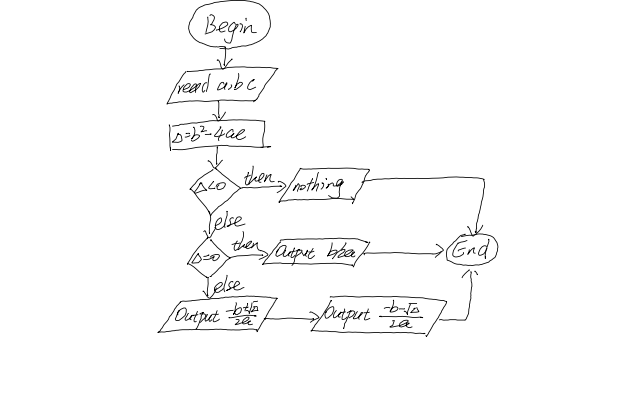 Begin
read a,b,c
Δ=b²-4ac
Δ<0
then
nothing
else
Δ=0
then
Output b/2a
End
else
Output -b+√Δ/2a
Output -b-√Δ/2a